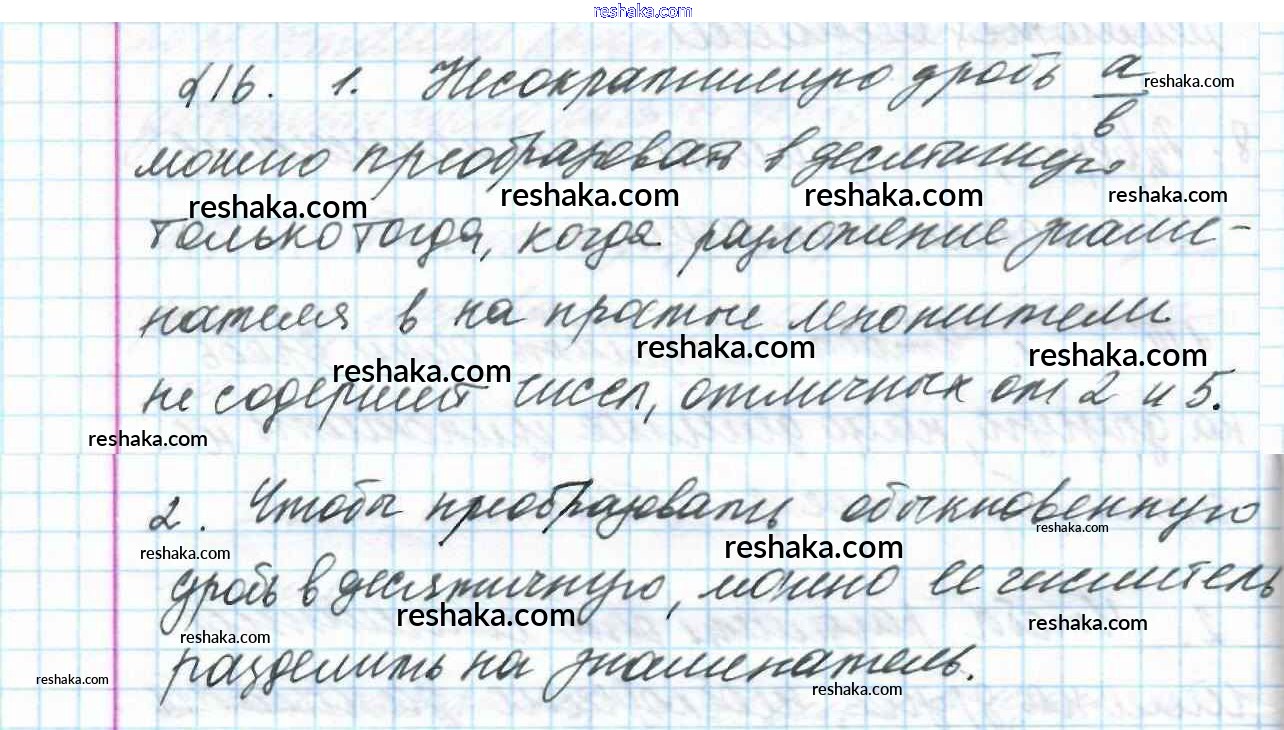 reshaka.com
§16. 1. Несократимую дробь a/b reshaka.com
можно преобразовать в десятичную
reshaka.com reshaka.com reshaka.com reshaka.com
только тогда, когда разложение знаме-
нателя в на простые множители
reshaka.com reshaka.com reshaka.com
не содержит чисел, отличных от 2 и 5.
reshaka.com
2. Чтобы преобразовать обыкновенную
reshaka.com reshaka.com reshaka.com
дробь в десятичную, можно ее числитель
reshaka.com reshaka.com reshaka.com
разделить на знаменатель.
reshaka.com reshaka.com